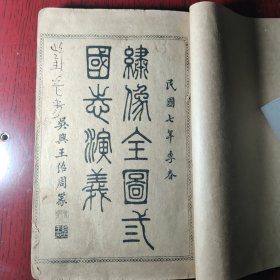 民國七年季春
繡像全圖弎
國志演義
吳興王周篆